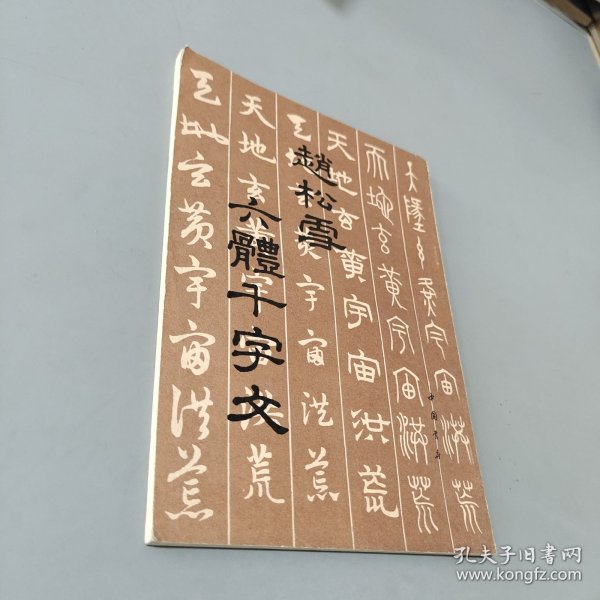 趙松雪
六體千字文
天地玄黃宇宙洪荒
天地玄黃宇宙洪荒
天地玄黃宇宙洪荒
天地玄黃宇宙洪荒
天地玄黃宇宙洪荒
天地玄黃宇宙洪荒
中国书店
孔夫子旧书网
www.kongfz.com